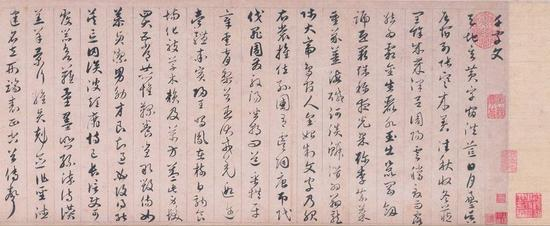 千字文
天地玄黃宇宙洪荒日月盈昃
辰宿列張寒來暑往秋收冬藏
閏餘成歲律呂調陽雲騰致雨露
結為霜金生麗水玉出崑岡劍
號巨闕珠稱夜光果珍李柰菜
重芥薑海鹹河淡鱗潛羽翔龍
師火帝鳥官人皇始制文字乃服
衣裳推位讓國有虞陶唐弔民
伐罪周發殷湯坐朝問道垂拱平
章愛育黎首臣伏戎羌遐邇
壹體率賓歸王鳴鳳在樹白駒食
場化被草木賴及萬方蓋此身髮
四大五常恭惟鞠養豈敢毀傷女
慕貞潔男效才良知過必改得能
莫忘罔談彼短靡恃己長信使可
覆器欲難量墨悲絲染詩讚
羔羊景行維賢剋念作聖德
建名立形端表正空谷傳聲